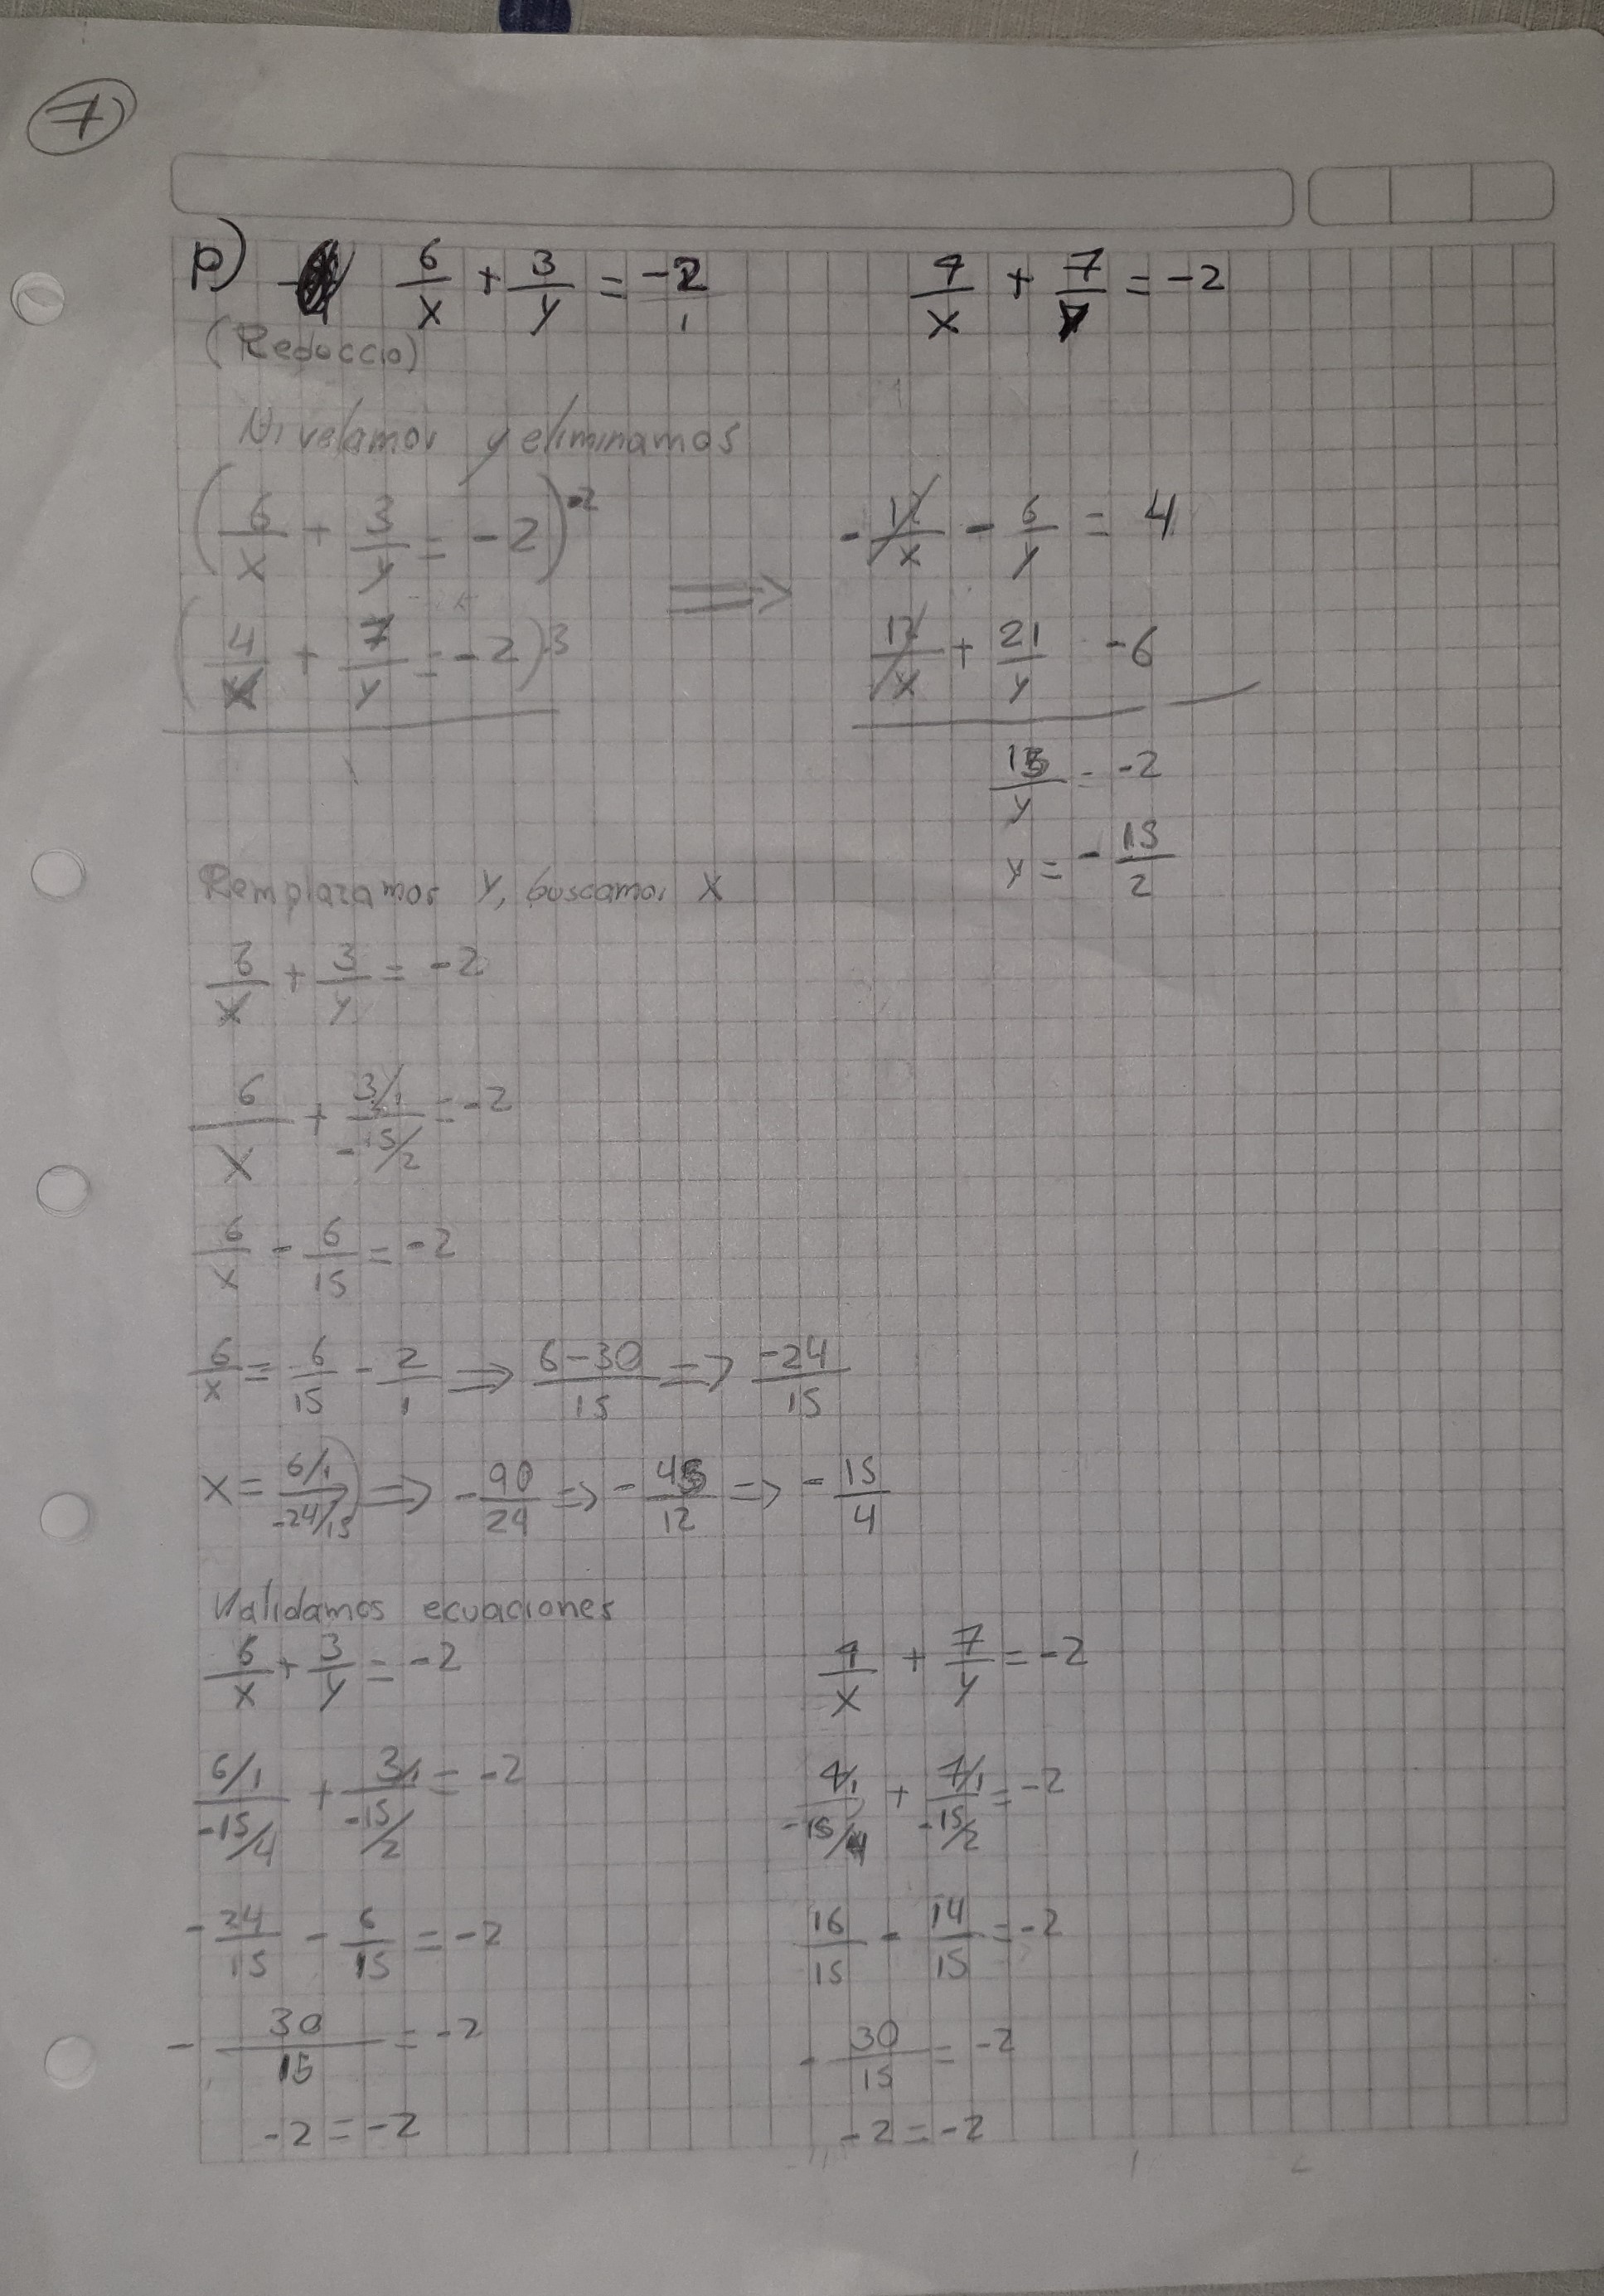 7
p) 6/x + 3/y = -2/1    4/x + 7/y = -2
(Reduccio)
Nivelamos y eliminamos
(6/x + 3/y = -2)·-2 ⟹ -12/x - 6/y = 4
(4/x + 7/y = -2)·3    12/x + 21/y -6
15/y = -2
y = -15/2
Remplazamos y, buscamos x
3/x + 3/y = -2
6/x + (3/1)/(-15/2) = -2
6/x - 6/15 = -2
6/x = 6/15 - 2/1 ⟹ (6-30)/15 => -24/15
x = (6/1)/(-24/15) ⟹ -90/24 => -45/12 => -15/4
Validamos ecuaciones
6/x + 3/y = -2    4/x + 7/y = -2
(6/1)/(-15/4) + (3/1)/(-15/2) = -2    (4/1)/(-15/4) + (7/1)/(-15/2) = -2
-24/15 - 6/15 = -2    16/15 - 14/15 = -2
-30/15 = -2    -30/15 = -2
-2 = -2    -2 = -2